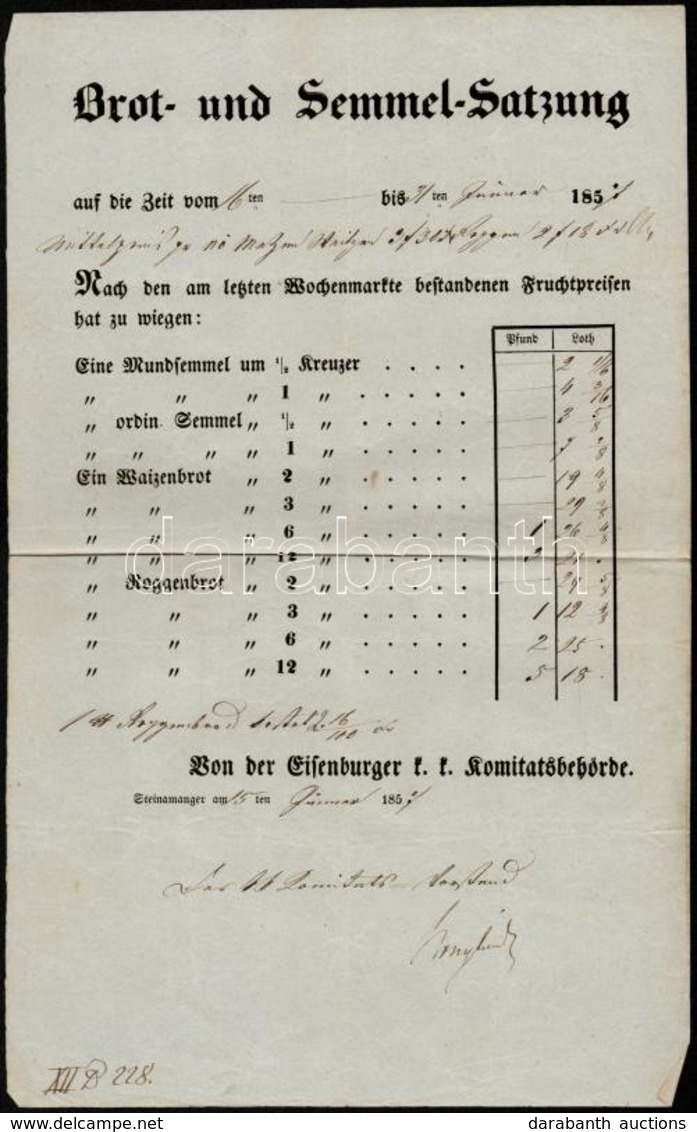 Brot- und Semmel-Satzung
auf die Zeit vom 16ten bis 31ten Jänner 1857
Mittelpreis pr nö Metzen Weitzen 3 f 30 Roggen 2 f 18
Nach den am letzten Wochenmarkte bestandenen Fruchtpreisen
hat zu wiegen:
Pfund Loth
Eine Mundsemmel um 1/2 Kreuzer . . . . 2 1/16
„ „ „ 1 „ . . . . . 4 3/16
„ ordin. Semmel „ 1/2 „ . . . . . 3 5/8
„ „ „ „ 1 „ . . . . . 7 2/8
Ein Waizenbrot „ 2 „ . . . . . 19 4/8
„ „ „ 3 „ . . . . . 29 2/8
„ „ „ 6 „ . . . . . 1 26 4/8
„ „ „ 12 „ . . . . . 3 21 .
„ Roggenbrot „ 2 „ . . . . . 29 5/8
„ „ „ 3 „ . . . . . 1 12 4/8
„ „ „ 6 „ . . . . . 2 25 .
„ „ „ 12 „ . . . . . 5 18 .
1 ℔ Roggenbrod kostet 2 16/100 xr
Von der Eisenburger k. k. Komitatsbehörde.
Steinamanger am 15 ten Jänner 1857
Der kk Komitats-Vorstand
XII B 228.
darabanth
darabanth auctions